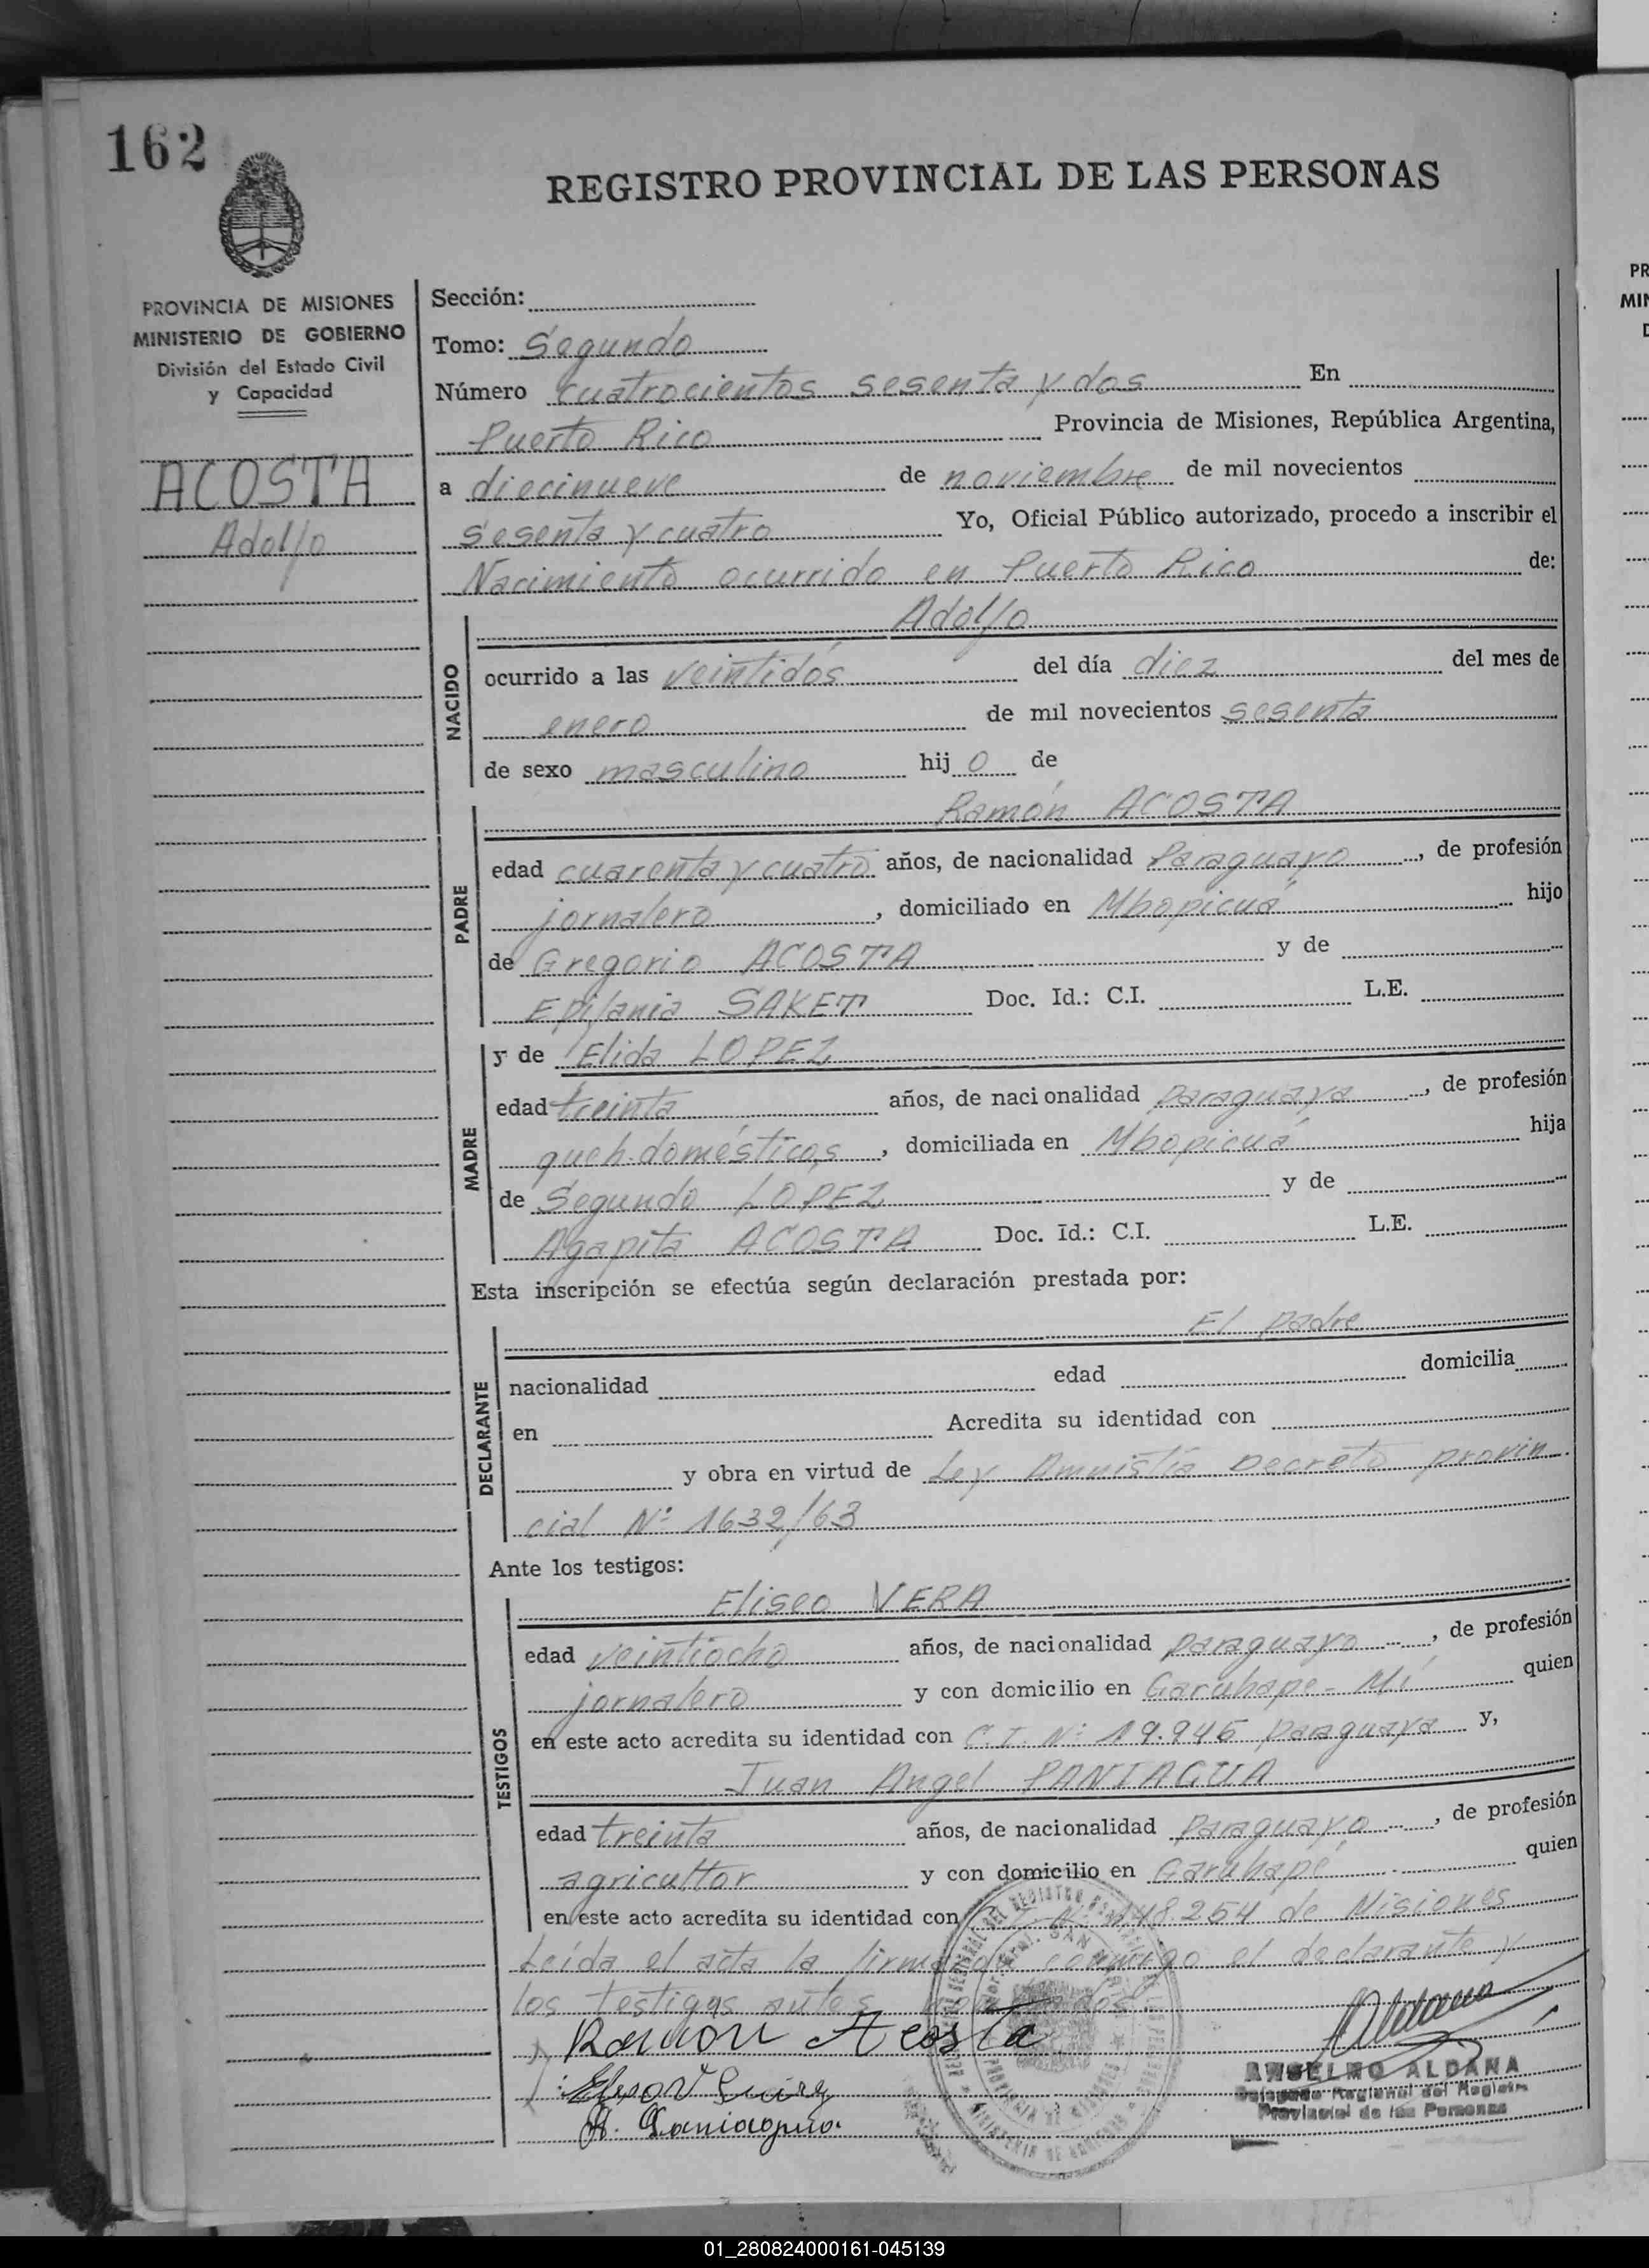 162
REGISTRO PROVINCIAL DE LAS PERSONAS
PROVINCIA DE MISIONES
MINISTERIO DE GOBIERNO
División del Estado Civil
y Capacidad
ACOSTA
Adolfo
Sección:
Tomo: Segundo
Número cuatrocientos sesenta y dos En
Puerto Rico Provincia de Misiones, República Argentina,
a diecinueve de noviembre de mil novecientos
sesenta y cuatro Yo, Oficial Público autorizado, procedo a inscribir el
Nacimiento ocurrido en Puerto Rico de:
NACIDO
Adolfo
ocurrido a las veintidós del día diez del mes de
enero de mil novecientos sesenta
de sexo masculino hij o de
PADRE
Ramón ACOSTA
edad cuarenta y cuatro años, de nacionalidad Paraguayo, de profesión
jornalero, domiciliado en Mbopicuá hijo
de Gregorio ACOSTA y de
Epifania SAKET Doc. Id.: C.I. L.E.
MADRE
y de Elida LOPEZ
edad treinta años, de naci onalidad paraguaya, de profesión
queh. domésticos, domiciliada en Mbopicuá hija
de Segundo LOPEZ y de
Agapita ACOSTA Doc. Id.: C.I. L.E.
Esta inscripción se efectúa según declaración prestada por:
DECLARANTE
El padre
nacionalidad edad domicilia
en Acredita su identidad con
y obra en virtud de Ley Amnistía Decreto provin
cial Nº 1632/63
Ante los testigos:
TESTIGOS
Eliseo VERA
edad veintiocho años, de nacionalidad paraguayo, de profesión
jornalero y con domicilio en Garuhapé-Mí quien
en este acto acredita su identidad con C.I. Nº 19.946 paraguaya y,
Juan Angel PANIAGUA
edad treinta años, de nacionalidad paraguayo, de profesión
agricultor y con domicilio en Garuhapé quien
en este acto acredita su identidad con 148.254 de Misiones
Leída el acta la firman conmigo el declarante y
los testigos antes
Ramón Acosta
A. Paniagua.
Aldana
ANSELMO ALDANA
Delegado Regional del Registro
Provincial de las Personas
PROVINCIA DE MISIONES
01_280824000161-045139